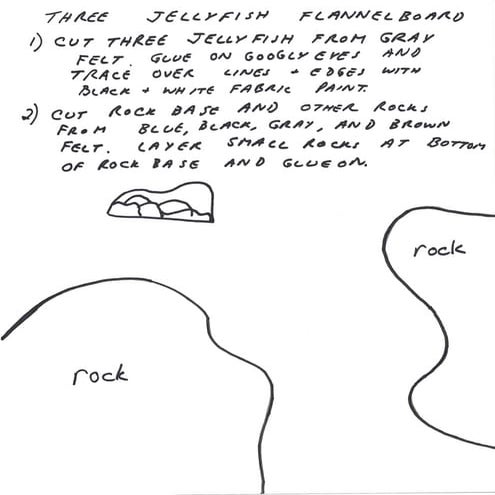 THREE JELLYFISH FLANNELBOARD
1) CUT THREE JELLYFISH FROM GRAY
FELT. GLUE ON GOOGLY EYES AND
TRACE OVER LINES + EDGES WITH
BLACK + WHITE FABRIC PAINT.
2) CUT ROCK BASE AND OTHER ROCKS
FROM BLUE, BLACK, GRAY, AND BROWN
FELT. LAYER SMALL ROCKS AT BOTTOM
OF ROCK BASE AND GLUE ON.
rock
rock